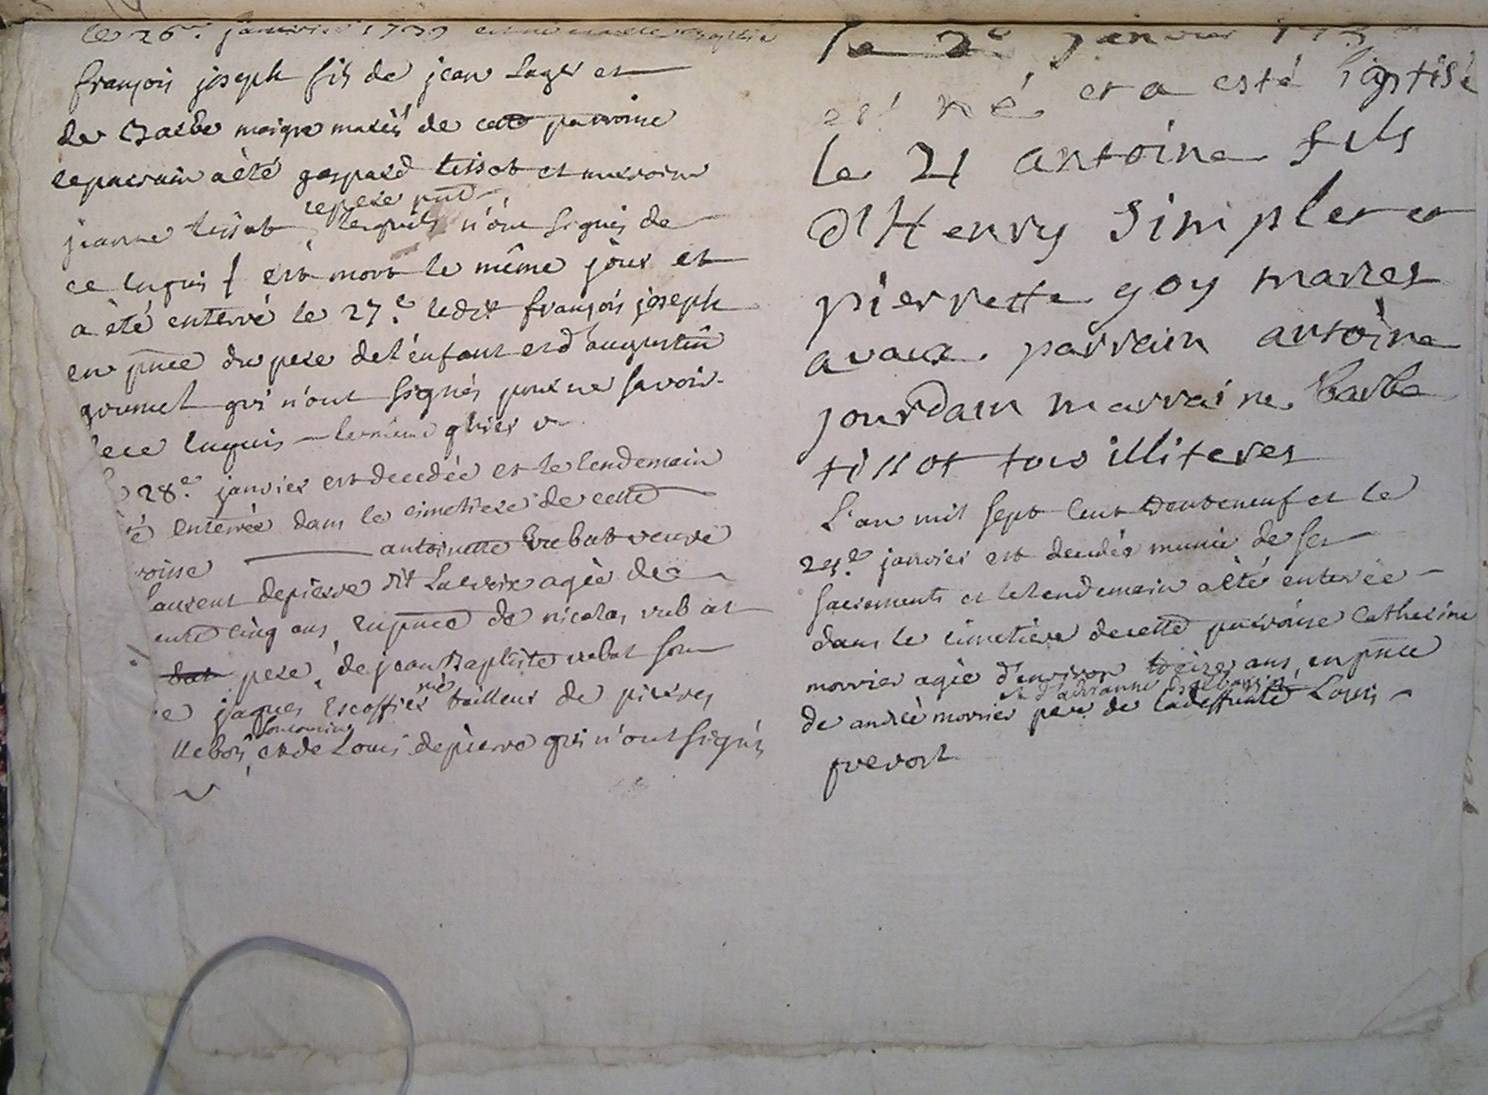 le 26.e janvier 1739 est né et a été baptisé
françois joseph fils de jean Lager et
de Barbe maigre mariés de cette paroisse
le parrain a été gaspard tissot et marraine
le pere pnt
jeanne tissot lesquels n'ont signés de
ce enquis est mort le même jour et
a été enterré le 27.e ledit françois joseph
en pnce du pere de l'enfant et d'augustin
gromet qui n'ont signés pour ne savoir
de ce enquis
28.e janvier est decedée et le lendemain
é enterrée dans le cimetiere de cette
roisse antoinette vubat veuve
laurent depierre dit Lacroix agée de
ente cinq ans en pnce de nicolas vubat
pere, de jean Baptiste vubat son
e jaques Escoffier tailleur de pierres
et de Louis depierre qui n'ont signés
le 2e janvier 173
est né et a esté baptisé
le 21 antoine fils
d'Henry Simpler et
pierrette goy maries
avaux. parrain antoine
jourdain marraine barbe
tissot tous illiteres
L'an mil sept cent trente neuf et le
24.e janvier est decedée munie de ses
sacrements et le lendemain a été enterée
dans le cimetiere de cette paroisse Catherine
morrier agée d'environ treize ans, en pnce
de andré morrier pere de la deffunte Louis
prevost